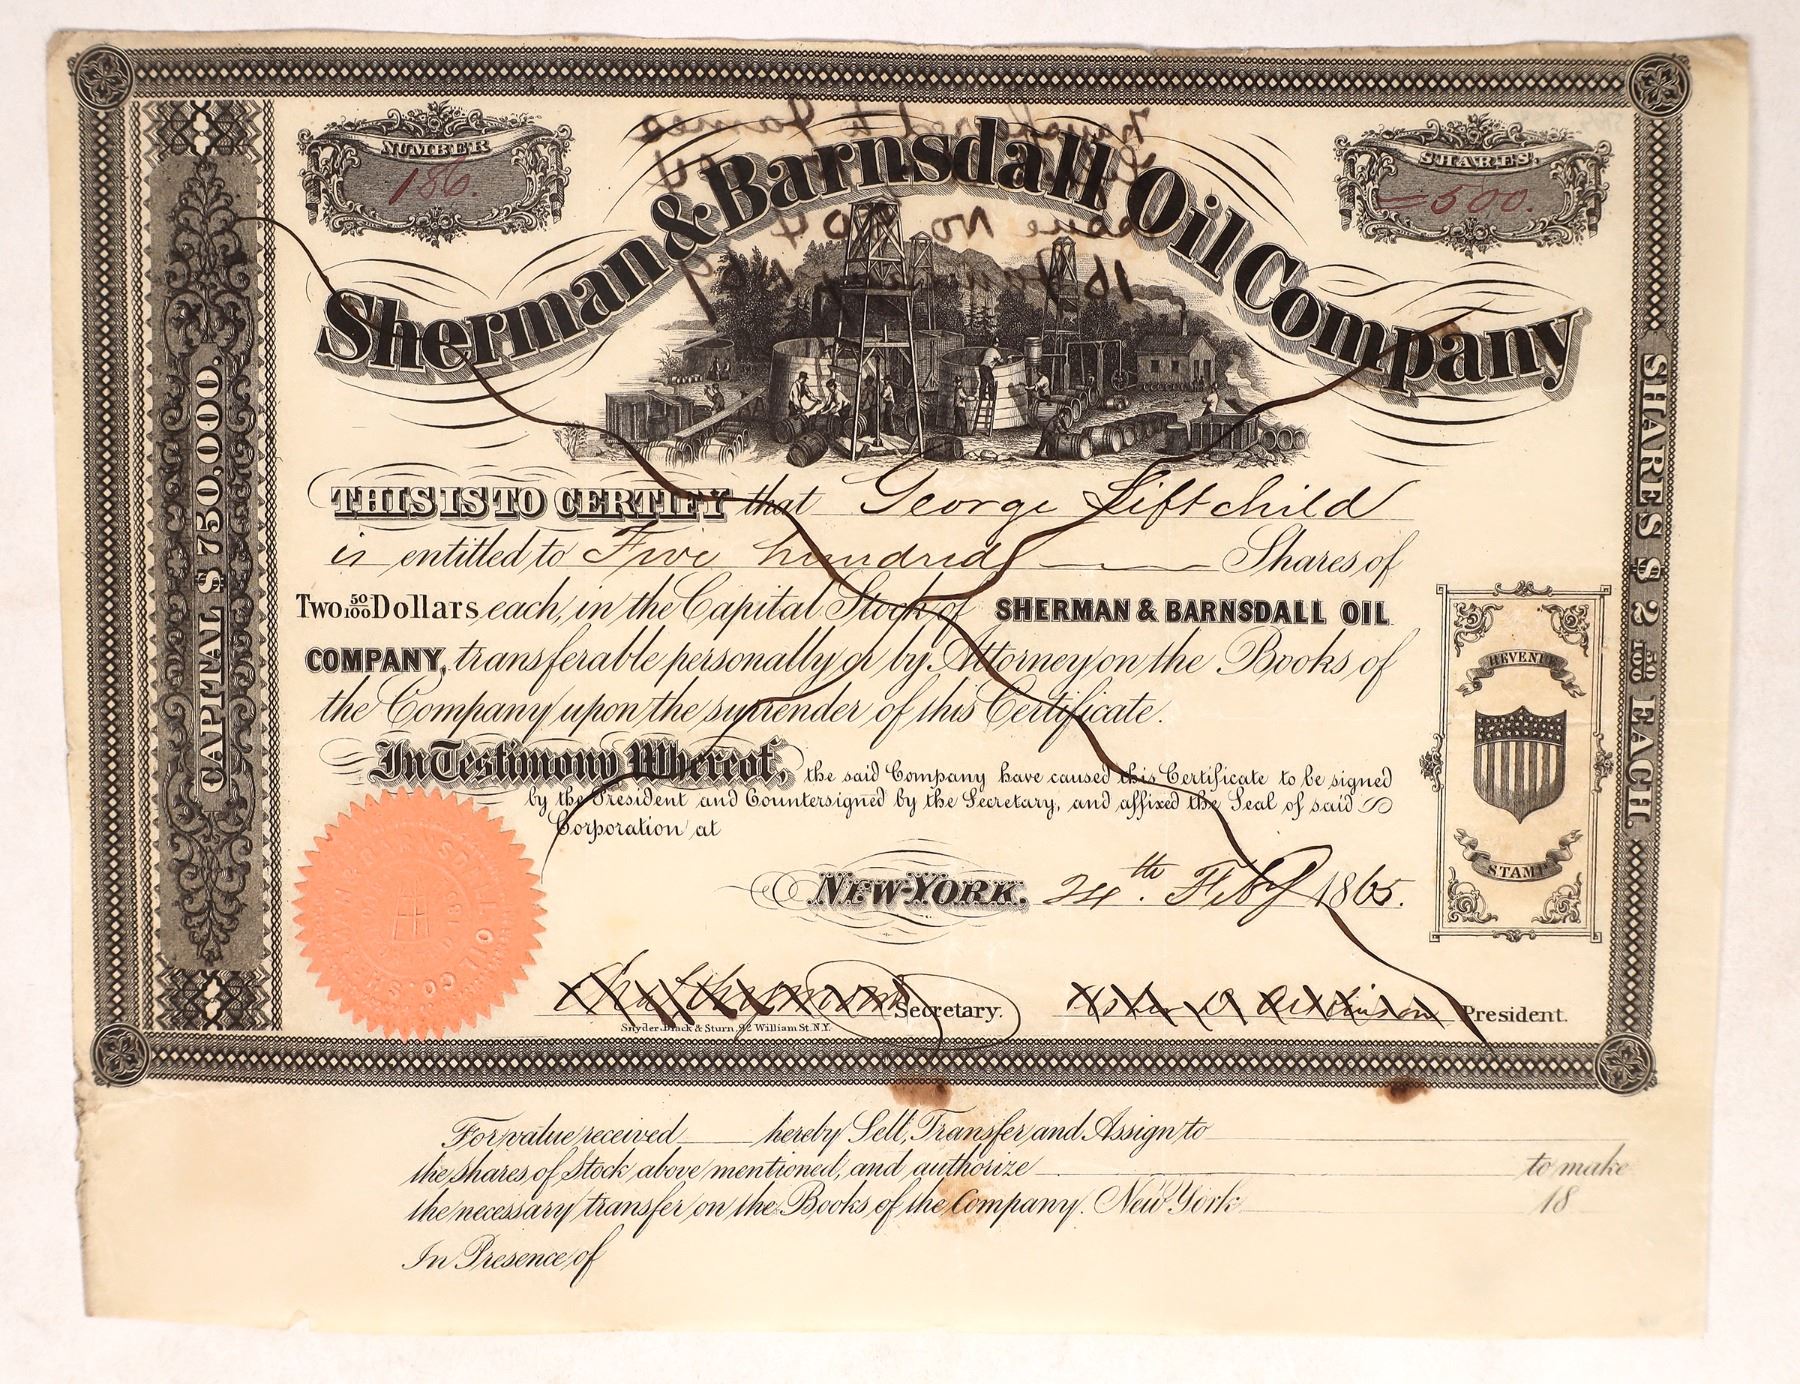 NUMBER
186.
SHARES.
=500.
Sherman & Barnsdall Oil Company
CAPITAL $750.000.
SHARES $2 50/100 EACH.
THIS IS TO CERTIFY that George Siftchild
is entitled to Five hundred Shares of
Two 50/100 Dollars each, in the Capital Stock of SHERMAN & BARNSDALL OIL
COMPANY, transferable personally or by Attorney on the Books of
the Company upon the surrender of this Certificate.
In Testimony Whereof, the said Company have caused this Certificate to be signed
by the President and Countersigned by the Secretary, and affixed the Seal of said
Corporation at
NEW-YORK. 24th. Feby 1865.
REVENUE
STAMP
Secretary.
President.
Snyder, Black & Sturn, 92 William St. N.Y.
For value received hereby Sell, Transfer and Assign to
the shares of Stock above mentioned, and authorize to make
the necessary transfer on the Books of the Company. New York 18
In Presence of